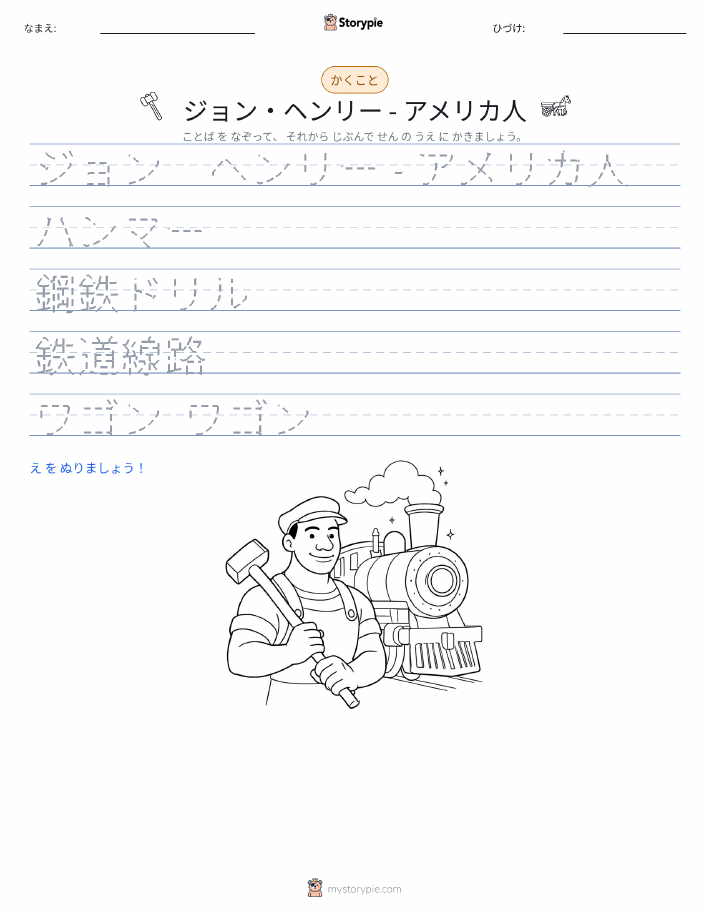 なまえ:
Storypie
ひづけ:
かくこと
ジョン・ヘンリー - アメリカ人
ことば を なぞって、 それから じぶんで せん の うえ に かきましょう。
ジョン ヘンリー - アメリカ人
ハンマー
鋼鉄ドリル
鉄道線路
ワゴン ワゴン
え を ぬりましょう！
mystorypie.com